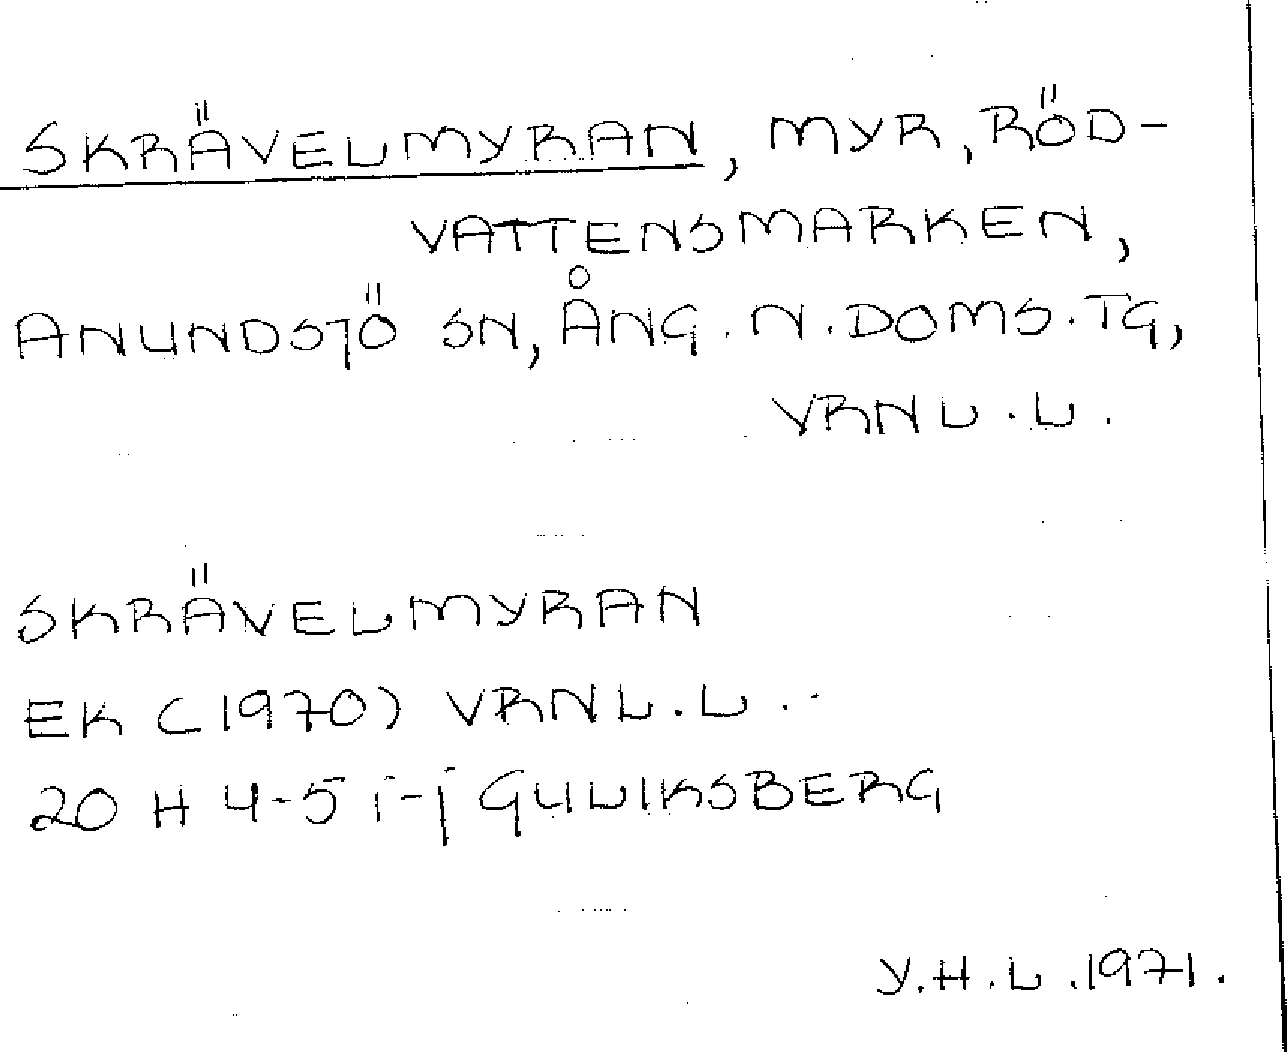 SKRÄVELMYRAN, MYR, RÖD-
VATTENSMARKEN,
ANUNDSJÖ SN, ÅNG. N. DOMS. TG,
VRNL.L.
SKRÄVELMYRAN
EK (1970) VRNL.L.
20 H 4-5 i-j GULIKSBERG
Y.H.L. 1971.